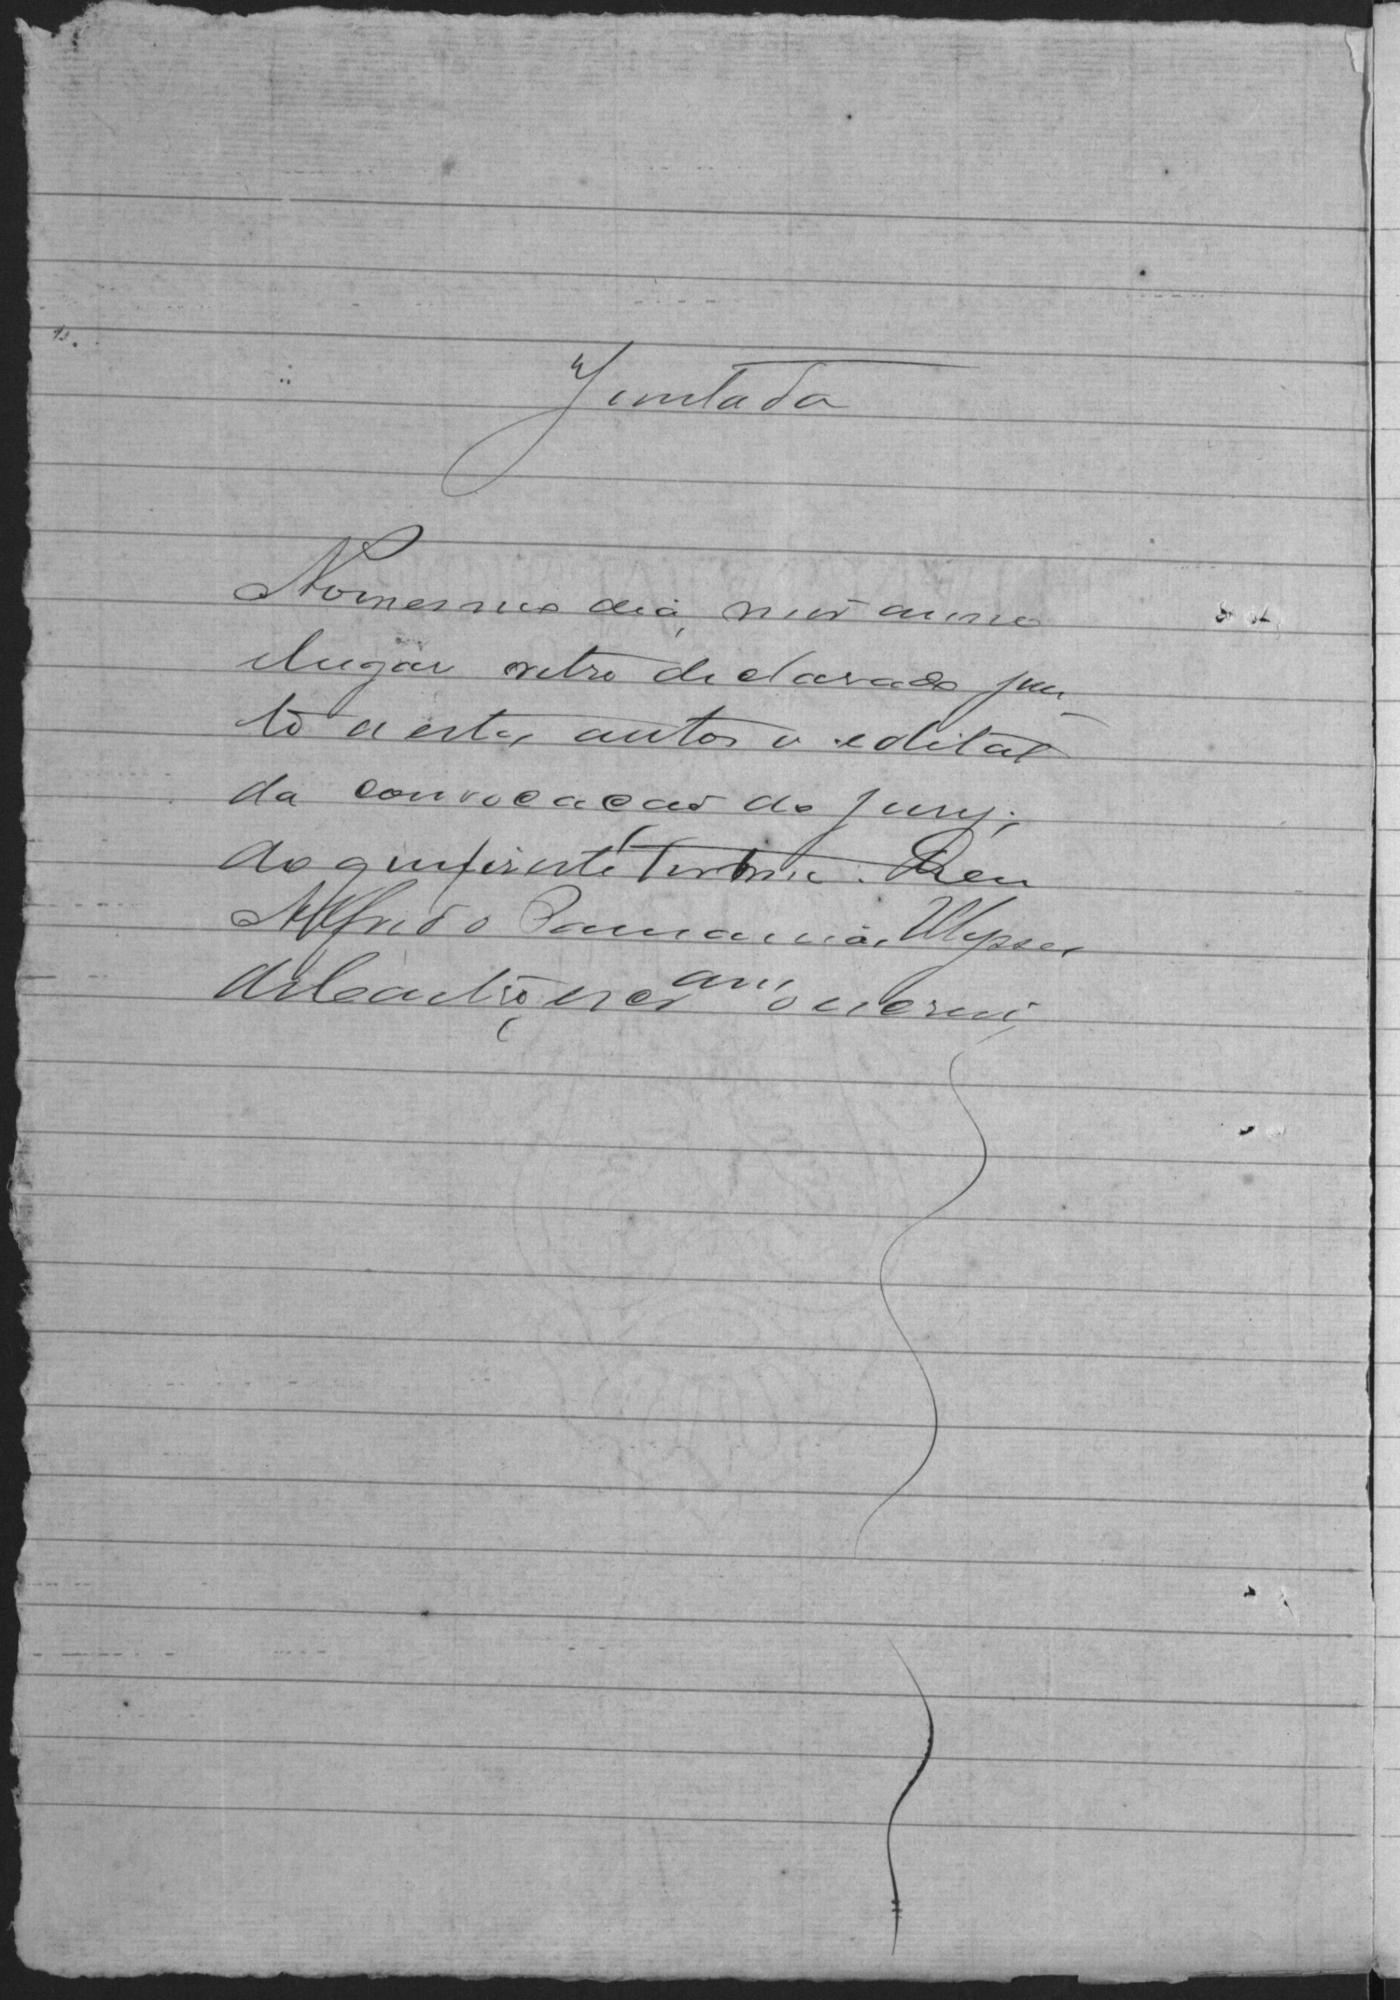 Juntada
No mesmo dia, mes anno
e lugar retro declarado jun
to a estes autos o edital
da convocação do jury,
do presente termo. Eu
Alfredo Ulysses
de Castro, escram o escrevi,